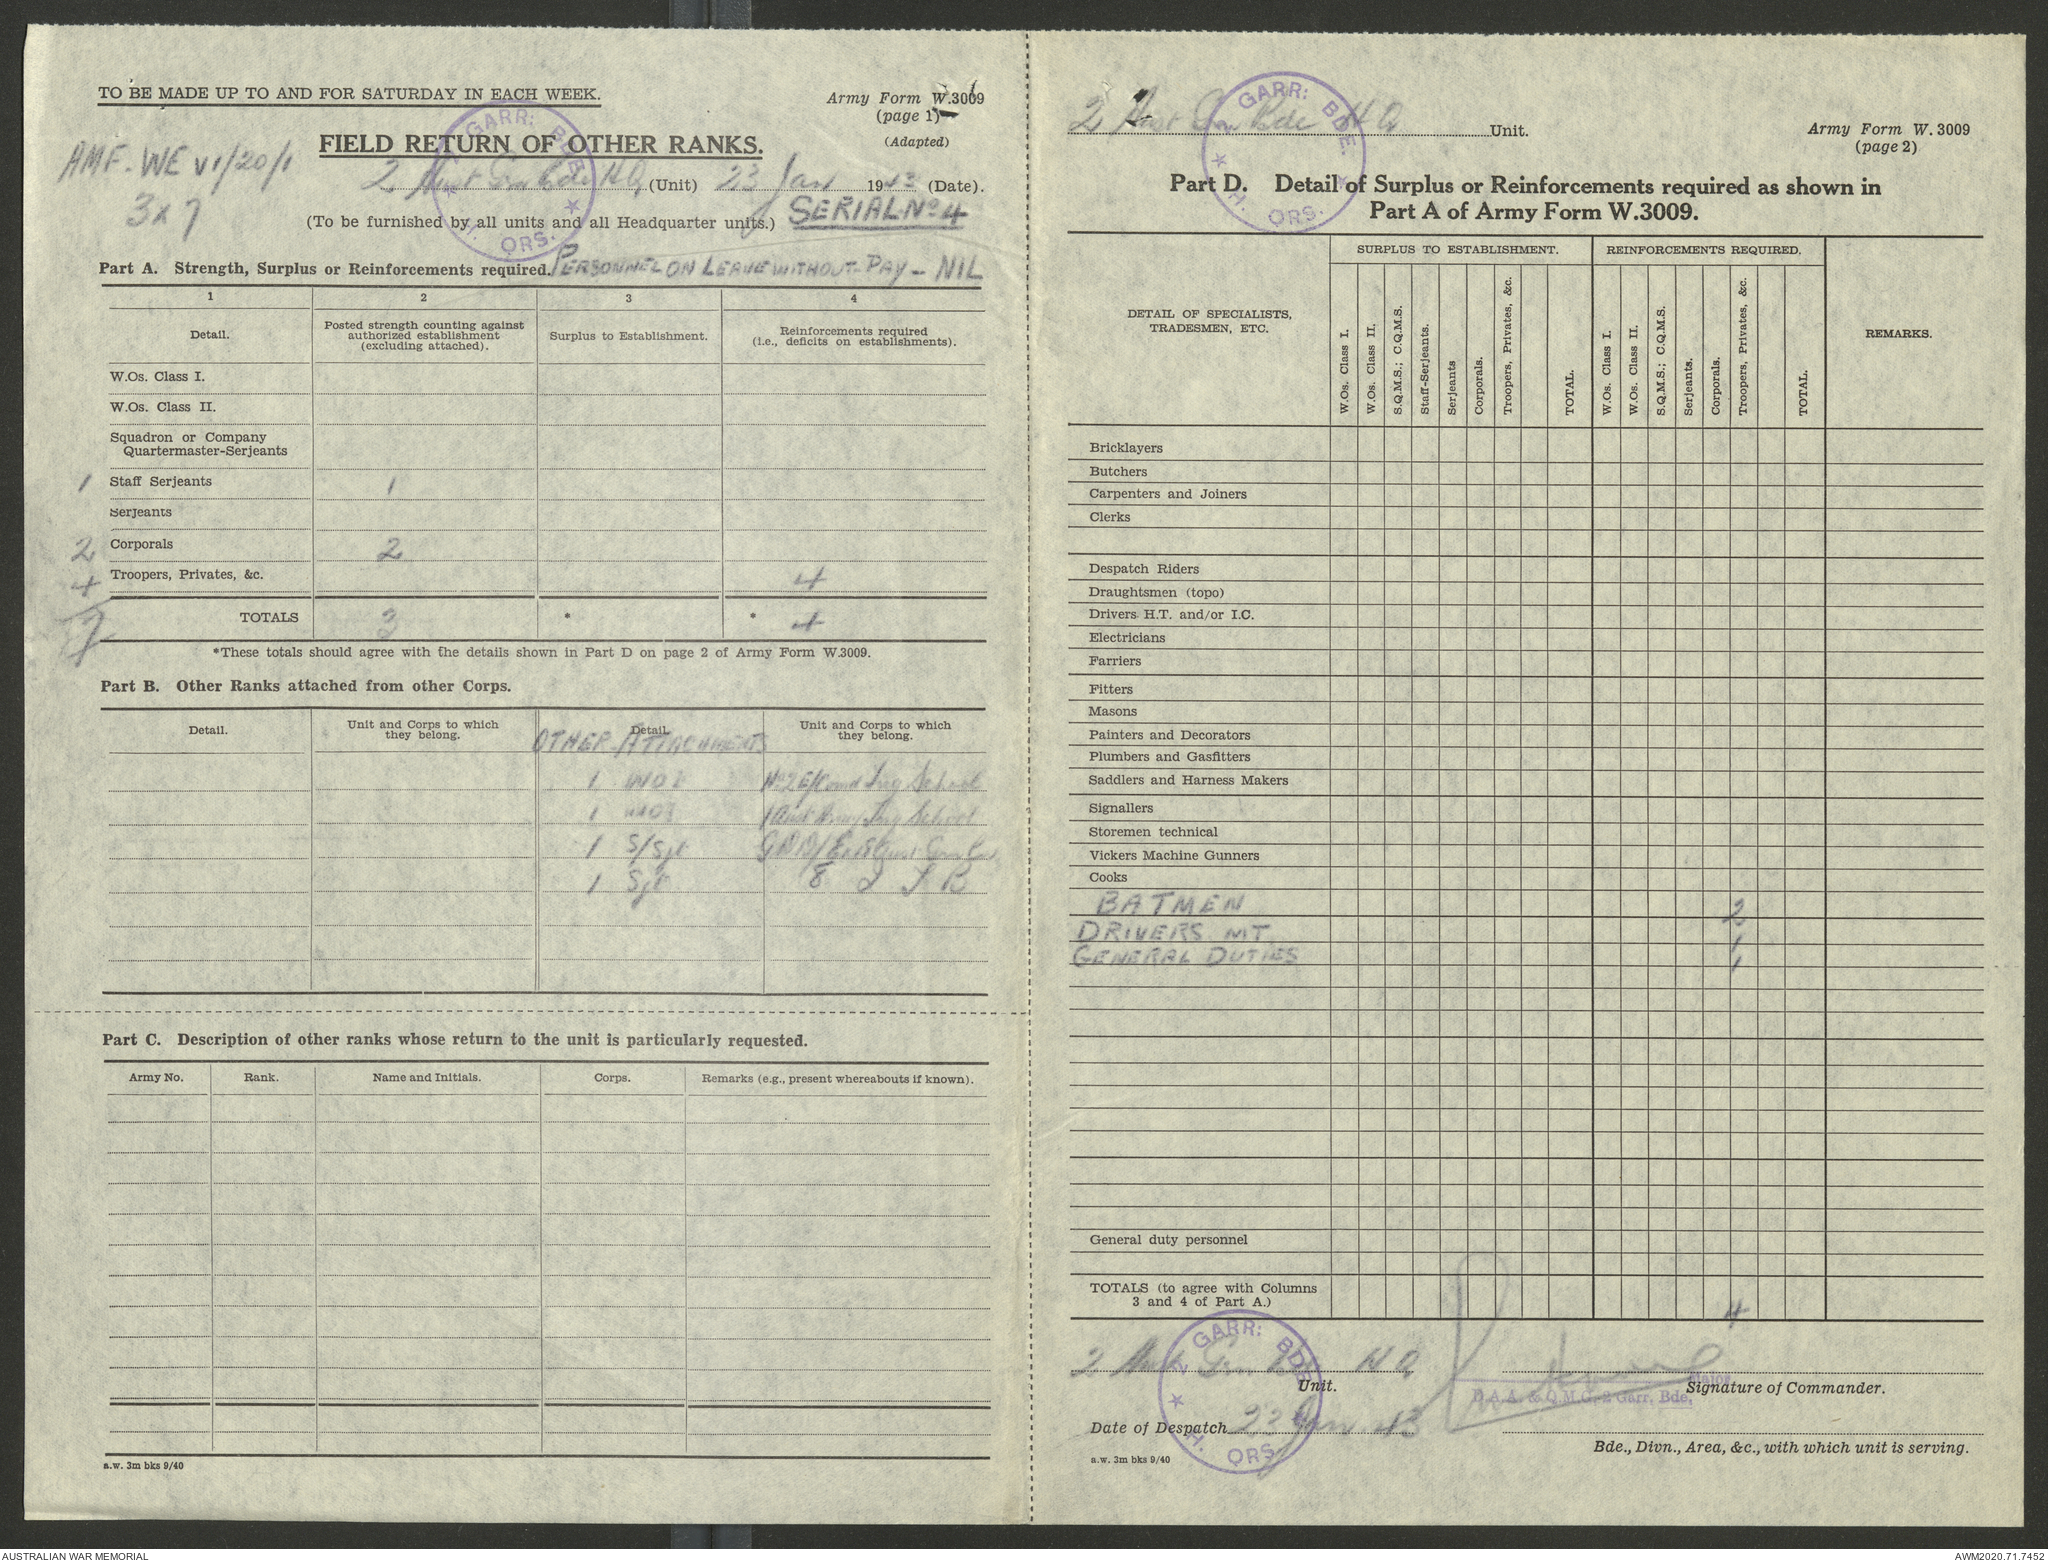 TO BE MADE UP TO AND FOR SATURDAY IN EACH WEEK.
Army Form W.3009
(page 1)
(Adapted)
FIELD RETURN OF OTHER RANKS.
AMF. WE VI/20/1
3 x 7
2 Aust Gar Bde HQ (Unit) 23 Jan 1943 (Date).
(To be furnished by all units and all Headquarter units.) SERIAL No 4
2 GARR: BDE. H. QRS.
Part A. Strength, Surplus or Reinforcements required. PERSONNEL ON LEAVE WITHOUT PAY - NIL
1 2 3 4
Detail. Posted strength counting against authorized establishment (excluding attached). Surplus to Establishment. Reinforcements required (i.e., deficits on establishments).
W.Os. Class I.
W.Os. Class II.
Squadron or Company
Quartermaster-Serjeants
1 Staff Serjeants 1
Serjeants
2 Corporals 2
4 Troopers, Privates, &c. 4
7 TOTALS 3 * * 4
*These totals should agree with the details shown in Part D on page 2 of Army Form W.3009.
Part B. Other Ranks attached from other Corps.
Detail. Unit and Corps to which they belong. Detail. Unit and Corps to which they belong.
OTHER ATTACHMENTS
1 WO2 School
1 1 Aust Army Trg School
1 S/Sgt
1 Sgt
Part C. Description of other ranks whose return to the unit is particularly requested.
Army No. Rank. Name and Initials. Corps. Remarks (e.g., present whereabouts if known).
a.w. 3m bks 9/40
2 Aust Gar Bde HQ Unit.
2 GARR: BDE. H. QRS.
Army Form W. 3009
(page 2)
Part D. Detail of Surplus or Reinforcements required as shown in
Part A of Army Form W.3009.
DETAIL OF SPECIALISTS, TRADESMEN, ETC.
SURPLUS TO ESTABLISHMENT. REINFORCEMENTS REQUIRED. REMARKS.
W.Os. Class I. W.Os. Class II. S.Q.M.S.; C.Q.M.S. Staff-Serjeants. Serjeants Corporals. Troopers, Privates, &c. TOTAL.
W.Os. Class I. W.Os. Class II. S.Q.M.S.; C.Q.M.S. Serjeants. Corporals. Troopers, Privates, &c. TOTAL.
Bricklayers
Butchers
Carpenters and Joiners
Clerks
Despatch Riders
Draughtsmen (topo)
Drivers H.T. and/or I.C.
Electricians
Farriers
Fitters
Masons
Painters and Decorators
Plumbers and Gasfitters
Saddlers and Harness Makers
Signallers
Storemen technical
Vickers Machine Gunners
Cooks
BATMEN 2
DRIVERS MT 1
GENERAL DUTIES 1
General duty personnel
TOTALS (to agree with Columns
3 and 4 of Part A.) 4
2 GARR: BDE. H. QRS.
2 Aust Gar Bde HQ
Unit.
Major
D.A.A. & Q.M.G. 2 Garr. Bde.
Signature of Commander.
Date of Despatch 23 Jan 43
Bde., Divn., Area, &c., with which unit is serving.
a.w. 3m bks 9/40
AUSTRALIAN WAR MEMORIAL
AWM2020.71.7452